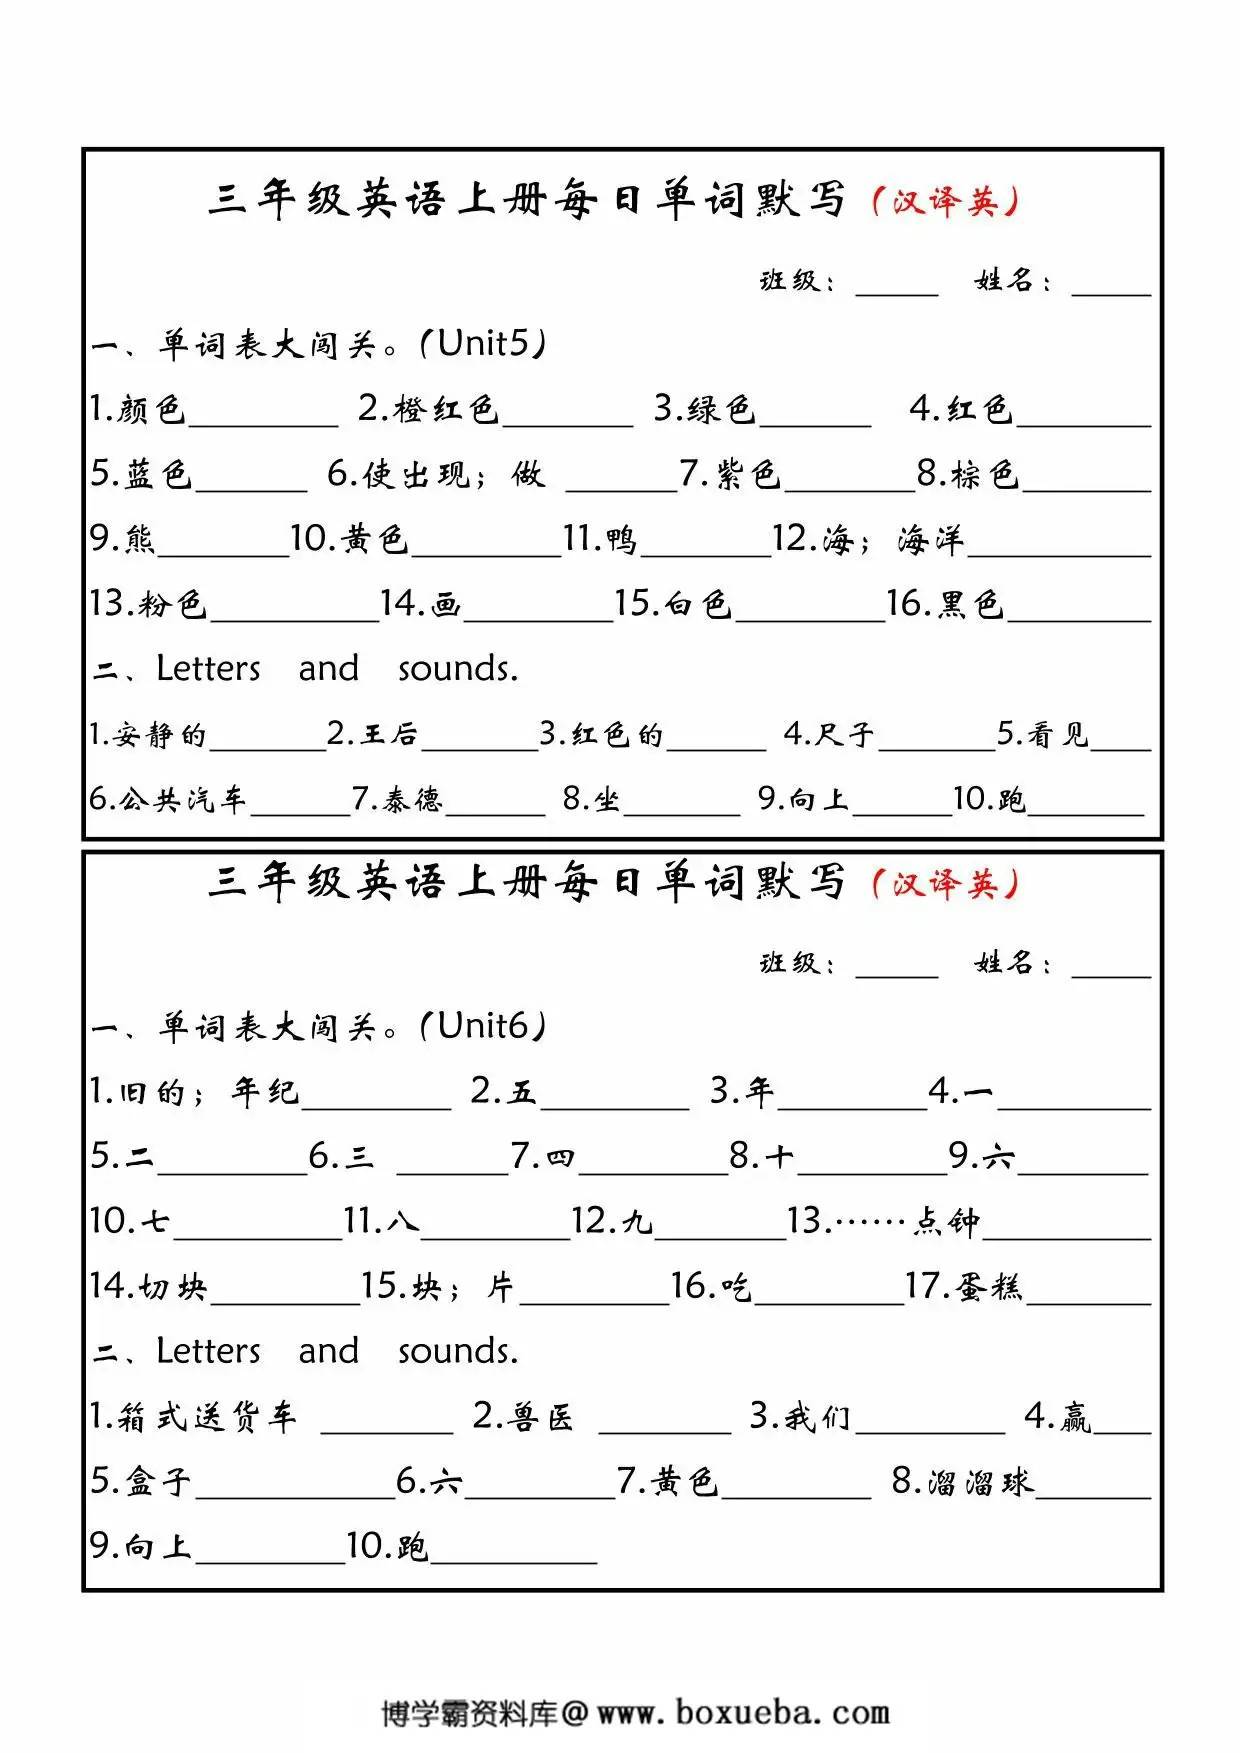 三年级英语上册每日单词默写（汉译英）
班级：_____ 姓名：_____
一、单词表大闯关。（Unit5）
1.颜色________ 2.橙红色_______ 3.绿色______ 4.红色_______
5.蓝色______ 6.使出现；做 ______7.紫色_______8.棕色_______
9.熊_______10.黄色________11.鸭_______12.海；海洋__________
13.粉色_________14.画________15.白色________16.黑色________
二、Letters and sounds.
1.安静的_______2.王后_______3.红色的______ 4.尺子_______5.看见____
6.公共汽车______7.泰德______ 8.坐_______ 9.向上______10.跑_______
三年级英语上册每日单词默写（汉译英）
班级：_____ 姓名：_____
一、单词表大闯关。（Unit6）
1.旧的；年纪________ 2.五________ 3.年________4.一________
5.二________6.三 ______7.四________8.十________9.六_______
10.七_________11.八________12.九_______13.……点钟_________
14.切块________15.块；片________16.吃________17.蛋糕_______
二、Letters and sounds.
1.箱式送货车 _______ 2.兽医 _______ 3.我们________ 4.赢___
5.盒子___________6.六________7.黄色________ 8.溜溜球______
9.向上________10.跑_________
博学霸资料库@www.boxueba.com